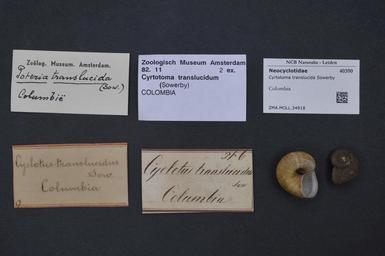 Zoölog. Museum. Amsterdam.
Poteria translucida
(Sow.)
Columbië
Zoologisch Museum Amsterdam
82. 11 2 ex.
Cyrtotoma translucidum
(Sowerby)
COLOMBIA
NCB Naturalis - Leiden
Neocyclotidae 40390
Cyrtotoma translucida Sowerby
Colombia
ZMA.MOLL.34918
Cyclotus translucidus
Sow.
Columbia
Cyclotus translucidus
Sow
Columbia